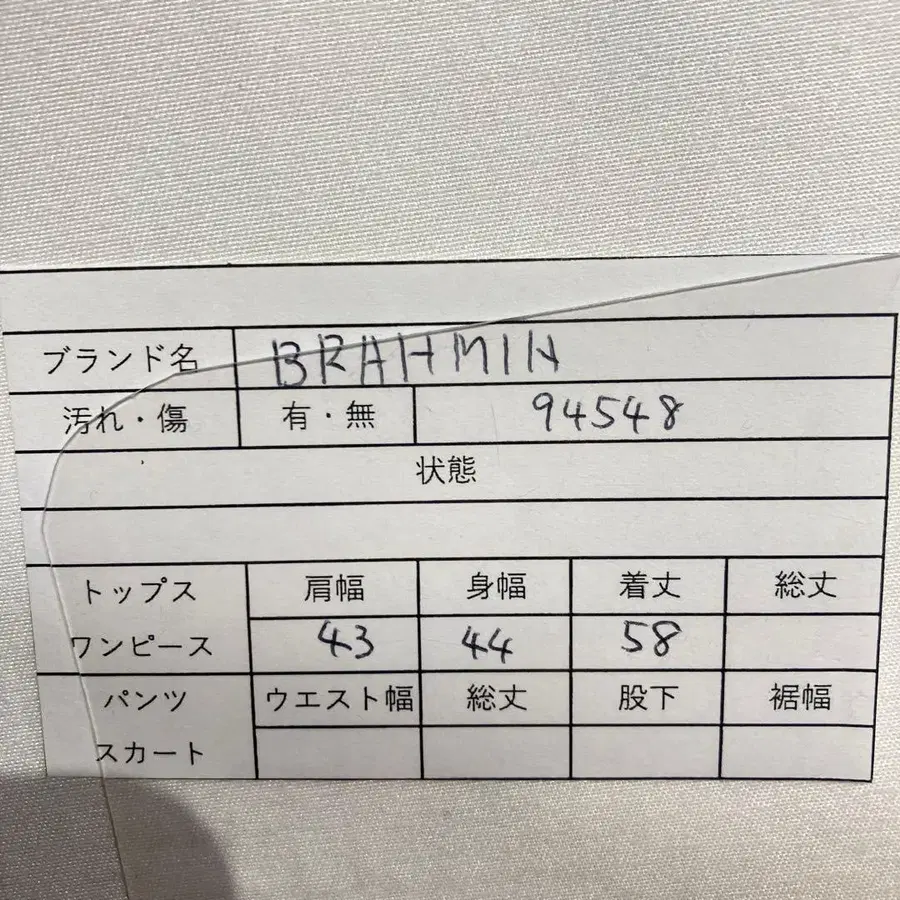 ブランド名 BRAHMIN
汚れ・傷 有・無 94548
状態
トップス 肩幅 身幅 着丈 総丈
ワンピース 43 44 58
パンツ ウエスト幅 総丈 股下 裾幅
スカート